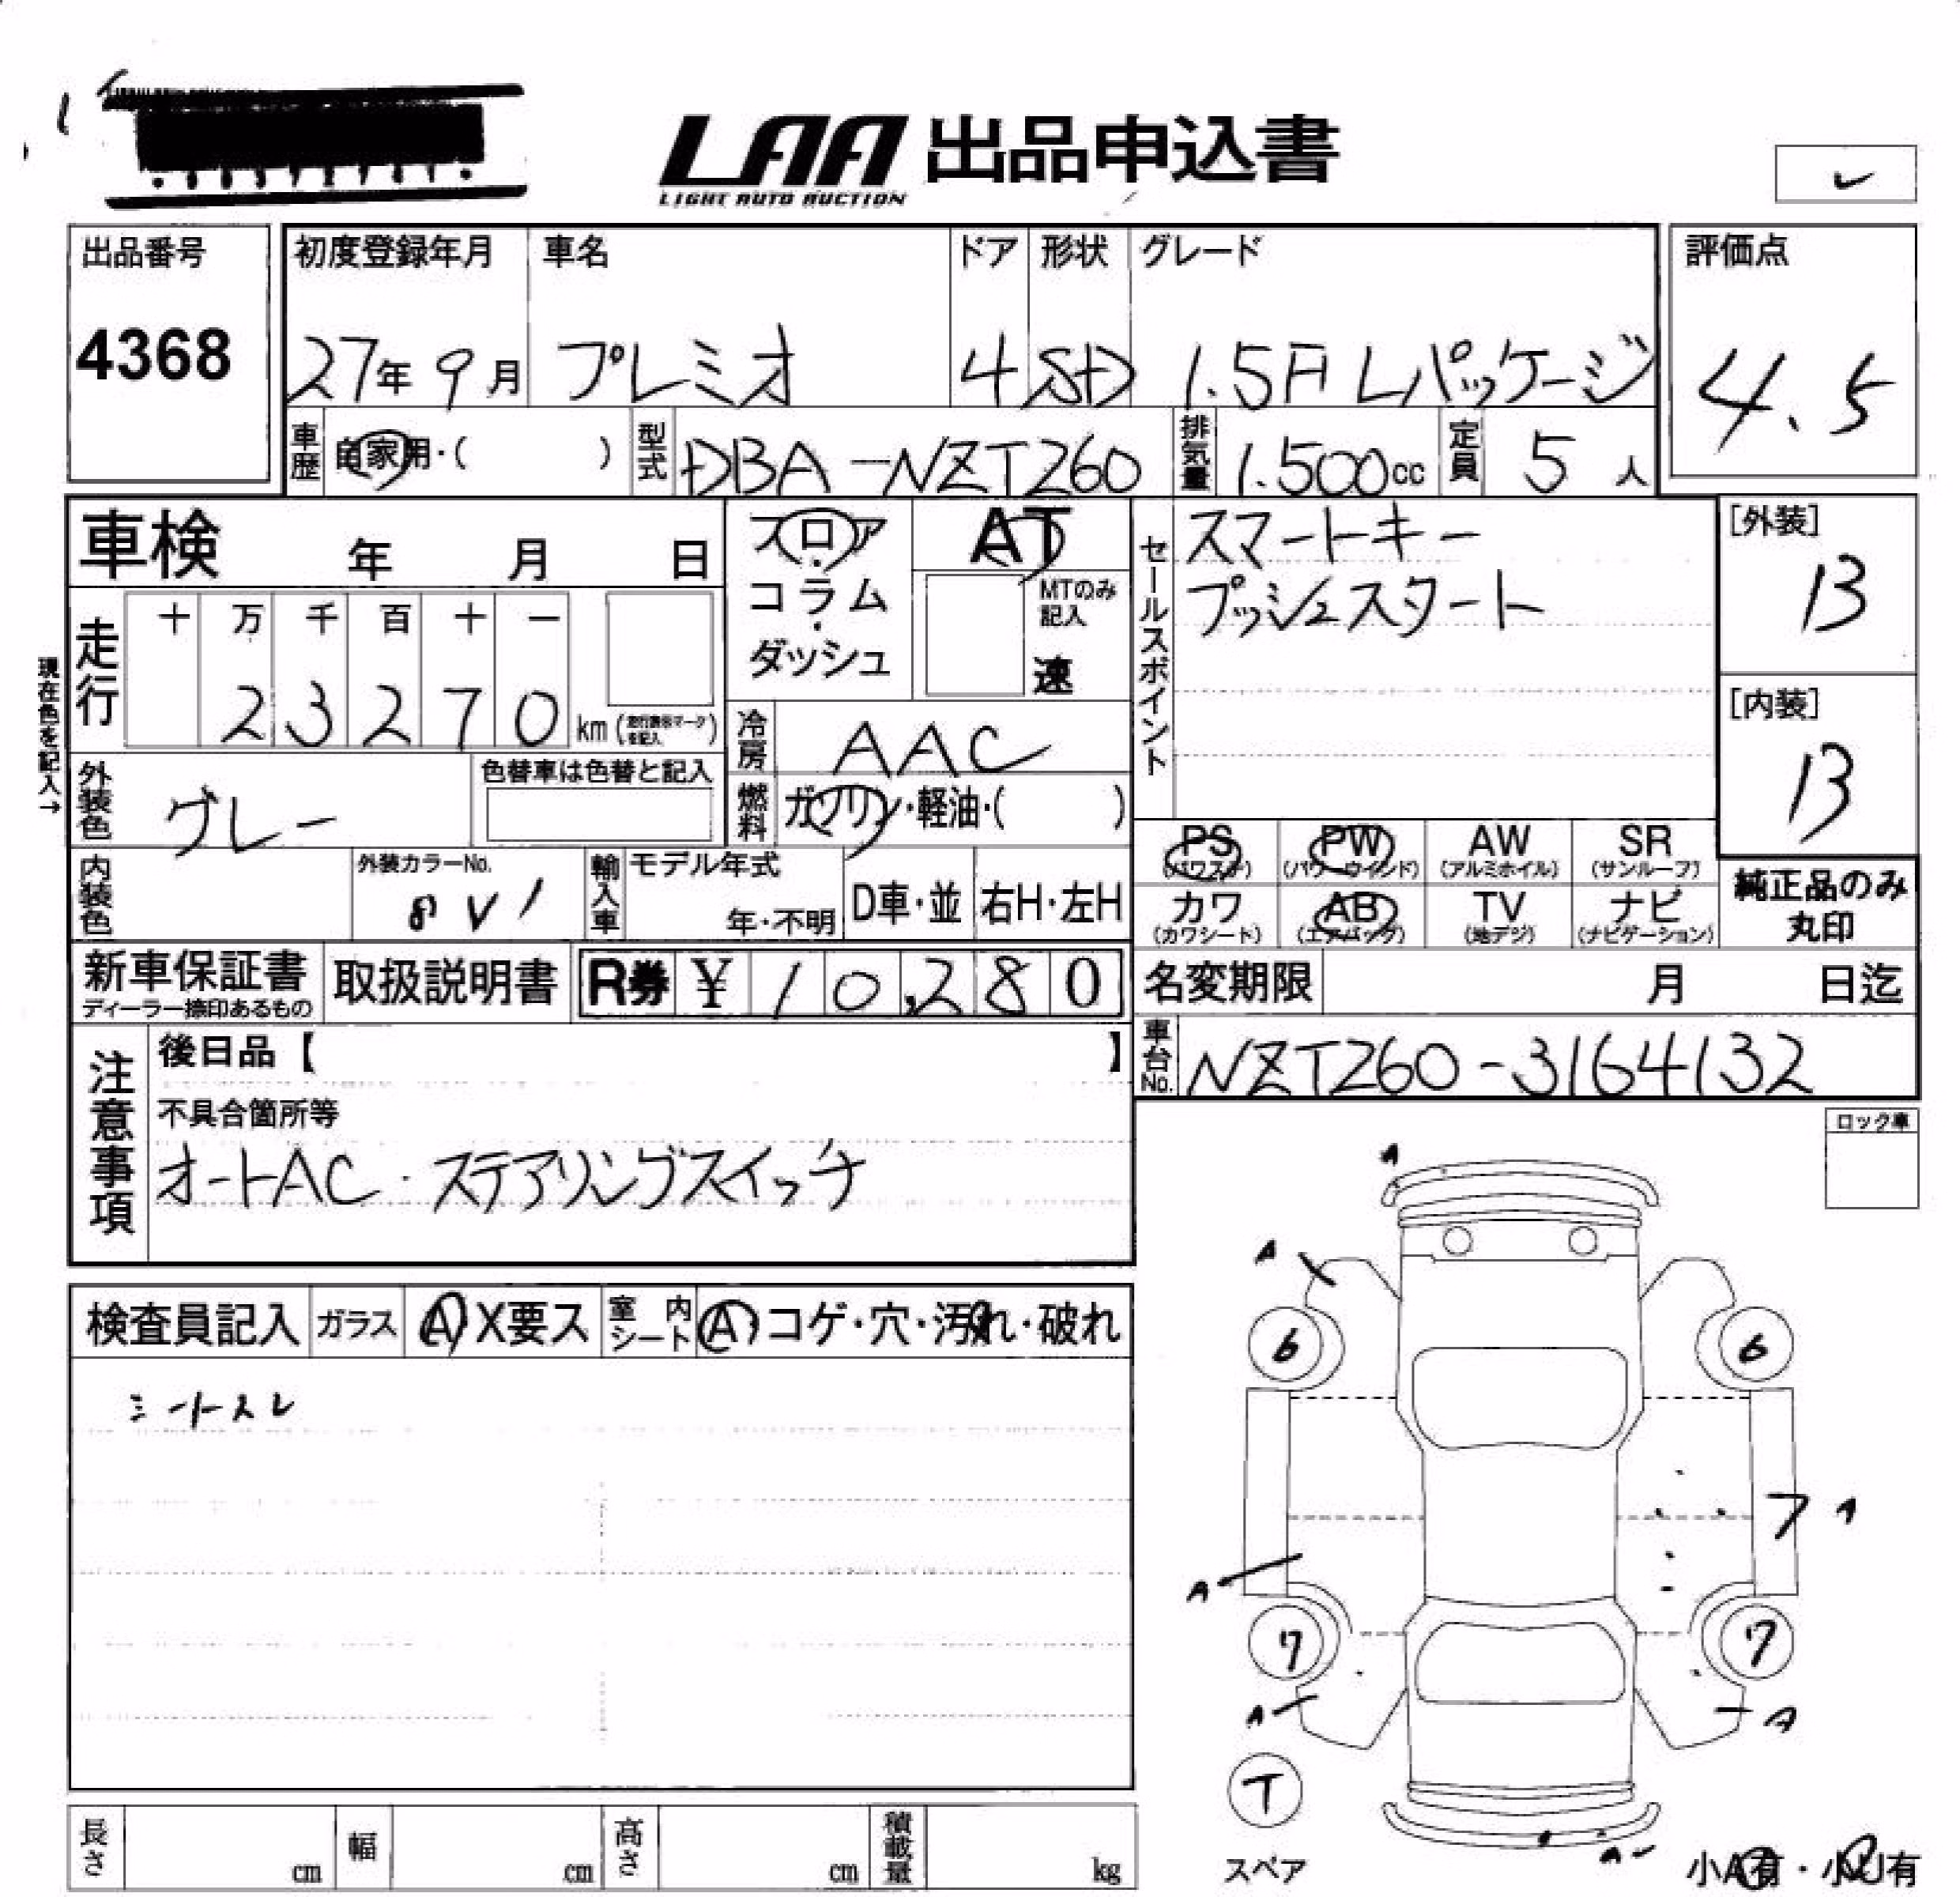 LAA 出品申込書
LIGHT AUTO AUCTION
出品番号
4368
初度登録年月
27年 9月
車名
プレミオ
ドア
4
形状
SD
グレード
1.5F Lパッケージ
評価点
4.5
車歴
自家用・( )
型式
DBA-NZT260
排気量
1.500cc
定員
5人
車検 年 月 日
フロア・
コラム・
ダッシュ
AT
MTのみ
記入
速
セールスポイント
スマートキー
プッシュスタート
[外装]
13
[内装]
13
現在色を記入→
走行
十 万 千 百 十 一
2 3 2 7 0 km
冷房
AAC
外装色
グレー
色替車は色替と記入
燃料
ガソリン・軽油・( )
内装色
外装カラーNo.
輸入車
モデル年式
年・不明
D車・並
右H・左H
PS
(パワステ)
PW
(パワーウインド)
AW
(アルミホイル)
SR
(サンルーフ)
カワ
(カワシート)
AB
(エアバッグ)
TV
(地デジ)
ナビ
(ナビゲーション)
純正品のみ
丸印
新車保証書
ディーラー捺印あるもの
取扱説明書
R券 ¥ 10,280
名変期限 月 日迄
車台No.
NZT260-3164132
注意事項
後日品【 】
不具合箇所等
オートAC・ステアリングスイッチ
ロック車
検査員記入
ガラス
A X要ス
室内シート
A コゲ・穴・汚れ・破れ
シートスレ
A
A
6
6
A
A
7
7
A
A
T
スペア
A
小A有・小U有
長さ cm
幅 cm
高さ cm
積載量 kg